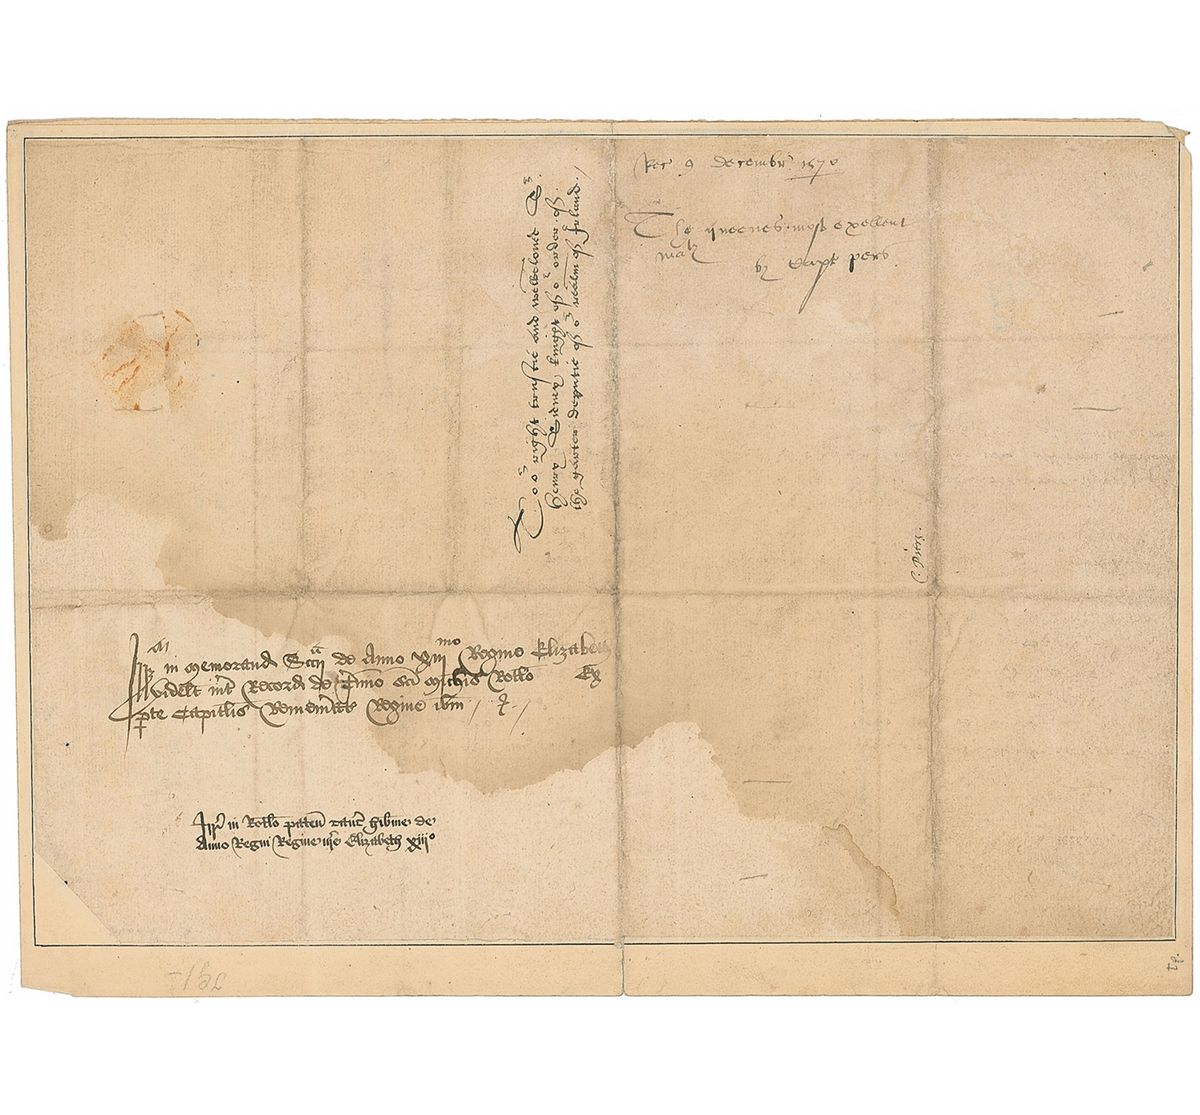 Rec 9 Decembr 1570
The queenes most exellent
matꝭ
by Capt pers
To oʳ right trustie and welbeloued Sʳ
Henry Sidney knight of oʳ order of
the garter deputie of oʳ realm of Ireland
C. Peirs
in memorand Sccii de Anno xiii mo Regine Elizabeth
videlt int Record de Tmino Sci Michis Rotlo
pte Capitlis Rememorat Regine ibm
Irr in Rotlo paten Canc Hibnie de
Anno Regni Regine nre Elizabeth xiiiº